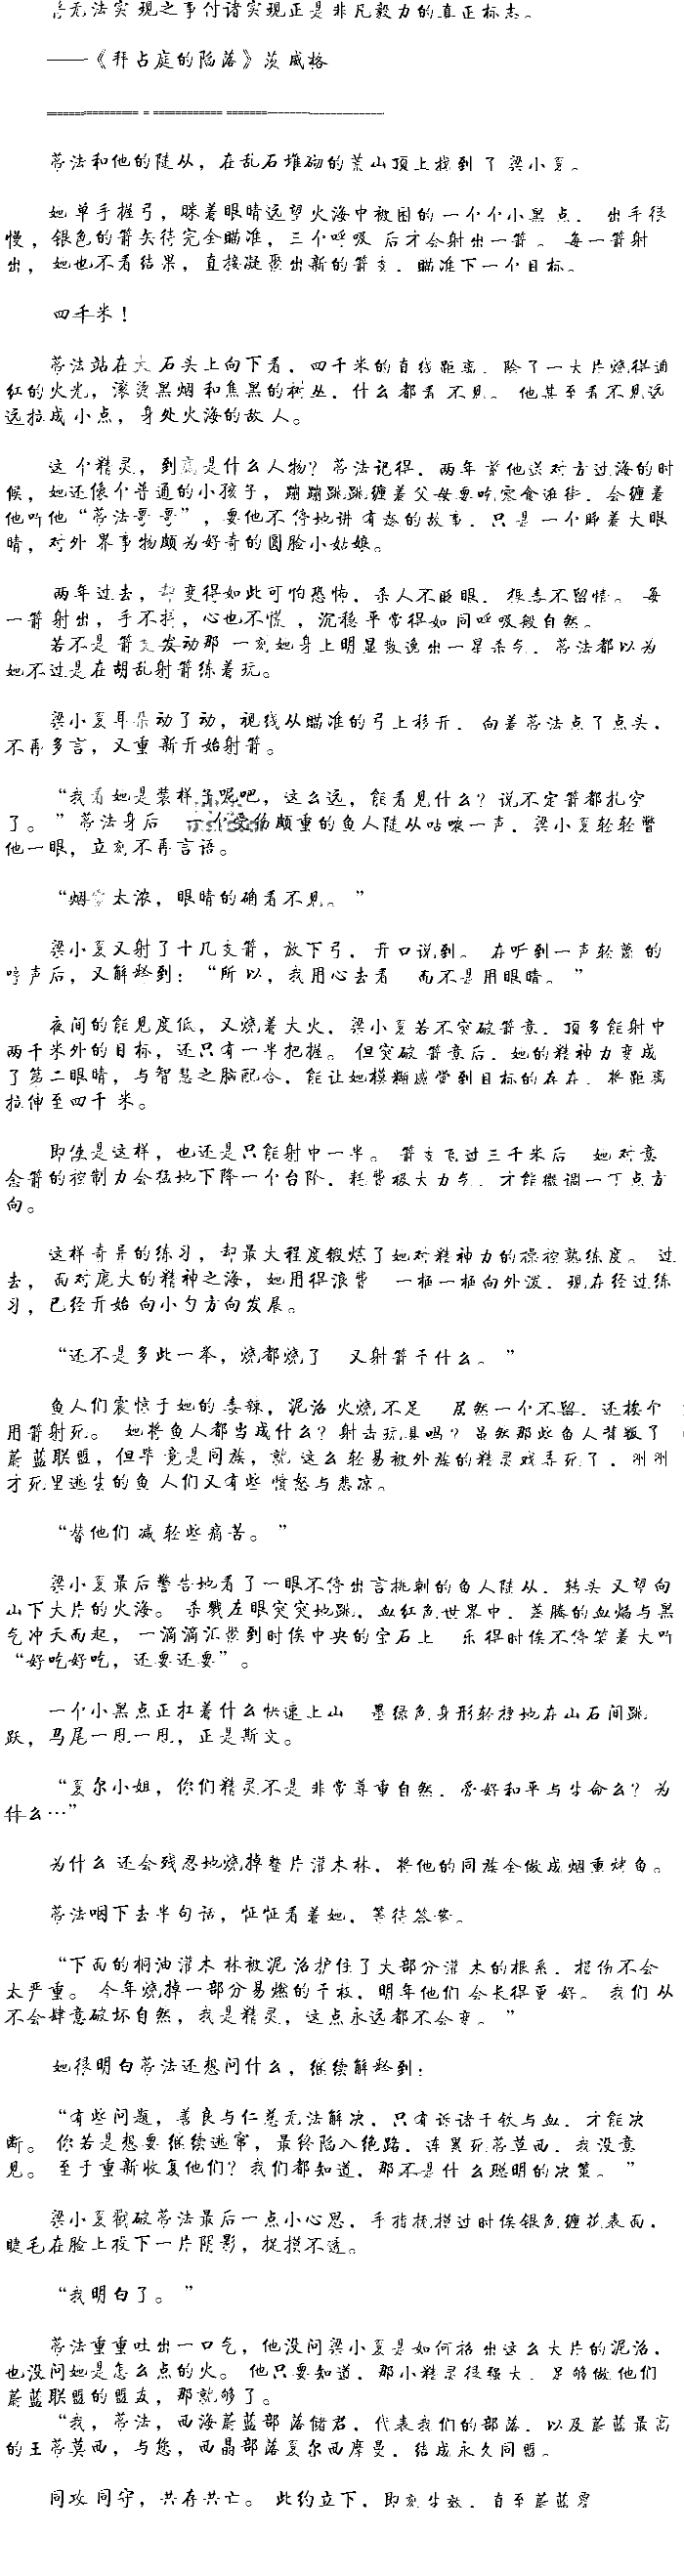 无法实现之事付诸实现正是非凡毅力的真正标志。
——《拜占庭的陷落》茨威格
蒂法和他的随从，在乱石堆砌的荒山顶上找到了梁小夏。
她单手握弓，眯着眼睛远望火海中被困的一个个小黑点，出手很
慢，银色的箭矢待完全瞄准，三个呼吸后才会射出一箭。每一箭射
出，她也不看结果，直接凝聚出新的箭支，瞄准下一个目标。
四千米！
蒂法站在大石头上向下看，四千米的直线距离，除了一大片烧得通
红的火光，滚烫黑烟和焦黑的树丛，什么都看不见。他甚至看不见远
远拉成小点，身处火海的敌人。
这个精灵，到底是什么人物？蒂法记得，两年前他送对方过海的时
候，她还像个普通的小孩子，蹦蹦跳跳缠着父母要吃零食逛街，会缠着
他听他“蒂法哥哥”，要他不停地讲有趣的故事，只是一个睁着大眼
睛，对外界事物颇为好奇的圆脸小姑娘。
两年过去，却变得如此可怕恐怖，杀人不眨眼，狠毒不留情。每
一箭射出，手不抖，心也不慌，沉稳平常得如同呼吸般自然。
若不是箭支发动那一刻她身上明显散逸出一星杀气，蒂法都以为
她不过是在胡乱射箭练着玩。
梁小夏耳朵动了动，视线从瞄准的弓上移开，向着蒂法点了点头，
不再多言，又重新开始射箭。
“我看她是装样子呢吧，这么远，能看见什么？说不定箭都扎空
了。”蒂法身后一个受伤颇重的鱼人随从咕哝一声，梁小夏轻轻瞥
他一眼，立刻不再言语。
“烟雾太浓，眼睛的确看不见。”
梁小夏又射了十几支箭，放下弓，开口说到。在听到一声轻蔑的
哼声后，又解释到：“所以，我用心去看 而不是用眼睛。”
夜间的能见度低，又烧着大火，梁小夏若不突破箭意，顶多能射中
两千米外的目标，还只有一半把握。但突破箭意后，她的精神力变成
了第二眼睛，与智慧之脑配合，能让她模糊感觉到目标的存在，将距离
拉伸至四千米。
即使是这样，也还是只能射中一半。箭支飞过三千米后 她对意
念箭的控制力会猛地下降一个台阶，耗费极大力气，才能微调一丁点方
向。
这样奇异的练习，却最大程度锻炼了她对精神力的操控熟练度。过
去，面对庞大的精神之海，她用得浪费 一桶一桶向外泼，现在经过练
习，已经开始向小勺方向发展。
“还不是多此一举，烧都烧了 又射箭干什么。”
鱼人们震惊于她的毒辣，泥沼火烧不足 居然一个不留，还挨个
用箭射死。她将鱼人都当成什么？射击玩具吗？虽然那些鱼人背叛了
蔚蓝联盟，但毕竟是同族，就这么轻易被外族的精灵戏弄死了，刚刚
才死里逃生的鱼人们又有些愤怒与悲凉。
“替他们减轻些痛苦。”
梁小夏最后警告地看了一眼不停出言挑刺的鱼人随从，转头又望向
山下大片的火海。杀戮左眼突突地跳，血红色世界中，蒸腾的血焰与黑
气冲天而起，一滴滴汇聚到时俟中央的宝石上 乐得时俟不停笑着大叫
“好吃好吃，还要还要”。
一个小黑点正扛着什么快速上山 墨绿色身形轻捷地在山石间跳
跃，马尾一甩一甩，正是斯文。
“夏尔小姐，你们精灵不是非常尊重自然，爱好和平与生命么？为
什么…”
为什么还会残忍地烧掉整片灌木林，将他的同族全做成烟熏烤鱼。
蒂法咽下去半句话，怔怔看着她，等待答案。
“下面的桐油灌木林被泥沼护住了大部分灌木的根系，损伤不会
太严重。今年烧掉一部分易燃的干枝，明年他们会长得更好。我们从
不会肆意破坏自然，我是精灵，这点永远都不会变。”
她很明白蒂法还想问什么，继续解释到：
“有些问题，善良与仁慈无法解决，只有诉诸于铁与血，才能决
断。你若是想要继续逃窜，最终陷入绝路，连累死蒂莫西，我没意
见。至于重新收复他们？我们都知道，那不是什么聪明的决策。”
梁小夏戳破蒂法最后一点小心思，手指抚摸过时俟银色缠花表面，
睫毛在脸上投下一片阴影，捉摸不透。
“我明白了。”
蒂法重重吐出一口气，他没问梁小夏是如何招出这么大片的泥沼，
也没问她是怎么点的火。他只要知道，那小精灵很强大，足够做他们
蔚蓝联盟的盟友，那就够了。
“我，蒂法，西海蔚蓝部落储君，代表我们的部落，以及蔚蓝最高
的王蒂莫西，与您，西晶部落夏尔西摩曼，结成永久同盟。
同攻同守，共存共亡。此约立下，即刻生效，直至蔚蓝